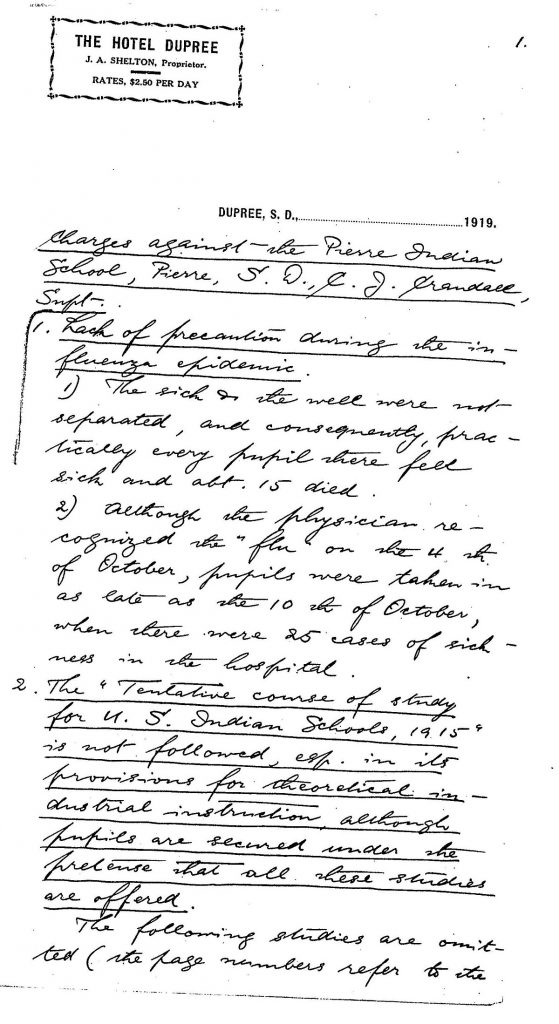 1.
THE HOTEL DUPREE
J. A. SHELTON, Proprietor.
RATES, $2.50 PER DAY
DUPREE, S. D.,........................1919.
Charges against the Pierre Indian
School, Pierre, S. D., C. J. Crandall,
Supt.
1. Lack of precaution during the in-
fluenza epidemic.
1) The sick & the well were not
separated, and consequently, prac-
tically every pupil there fell
sick and abt. 15 died.
2) Although the physician re-
cognized the "flu" on the 4 th
of October, pupils were taken in
as late as the 10 th of October,
when there were 25 cases of sick-
ness in the hospital.
2. The "Tentative course of study
for U. S. Indian Schools, 1915"
is not followed, esp. in its
provisions for theoretical in-
dustrial instruction, although
pupils are secured under the
pretense that all these studies
are offered.
The following studies are omit-
ted (the page numbers refer to the